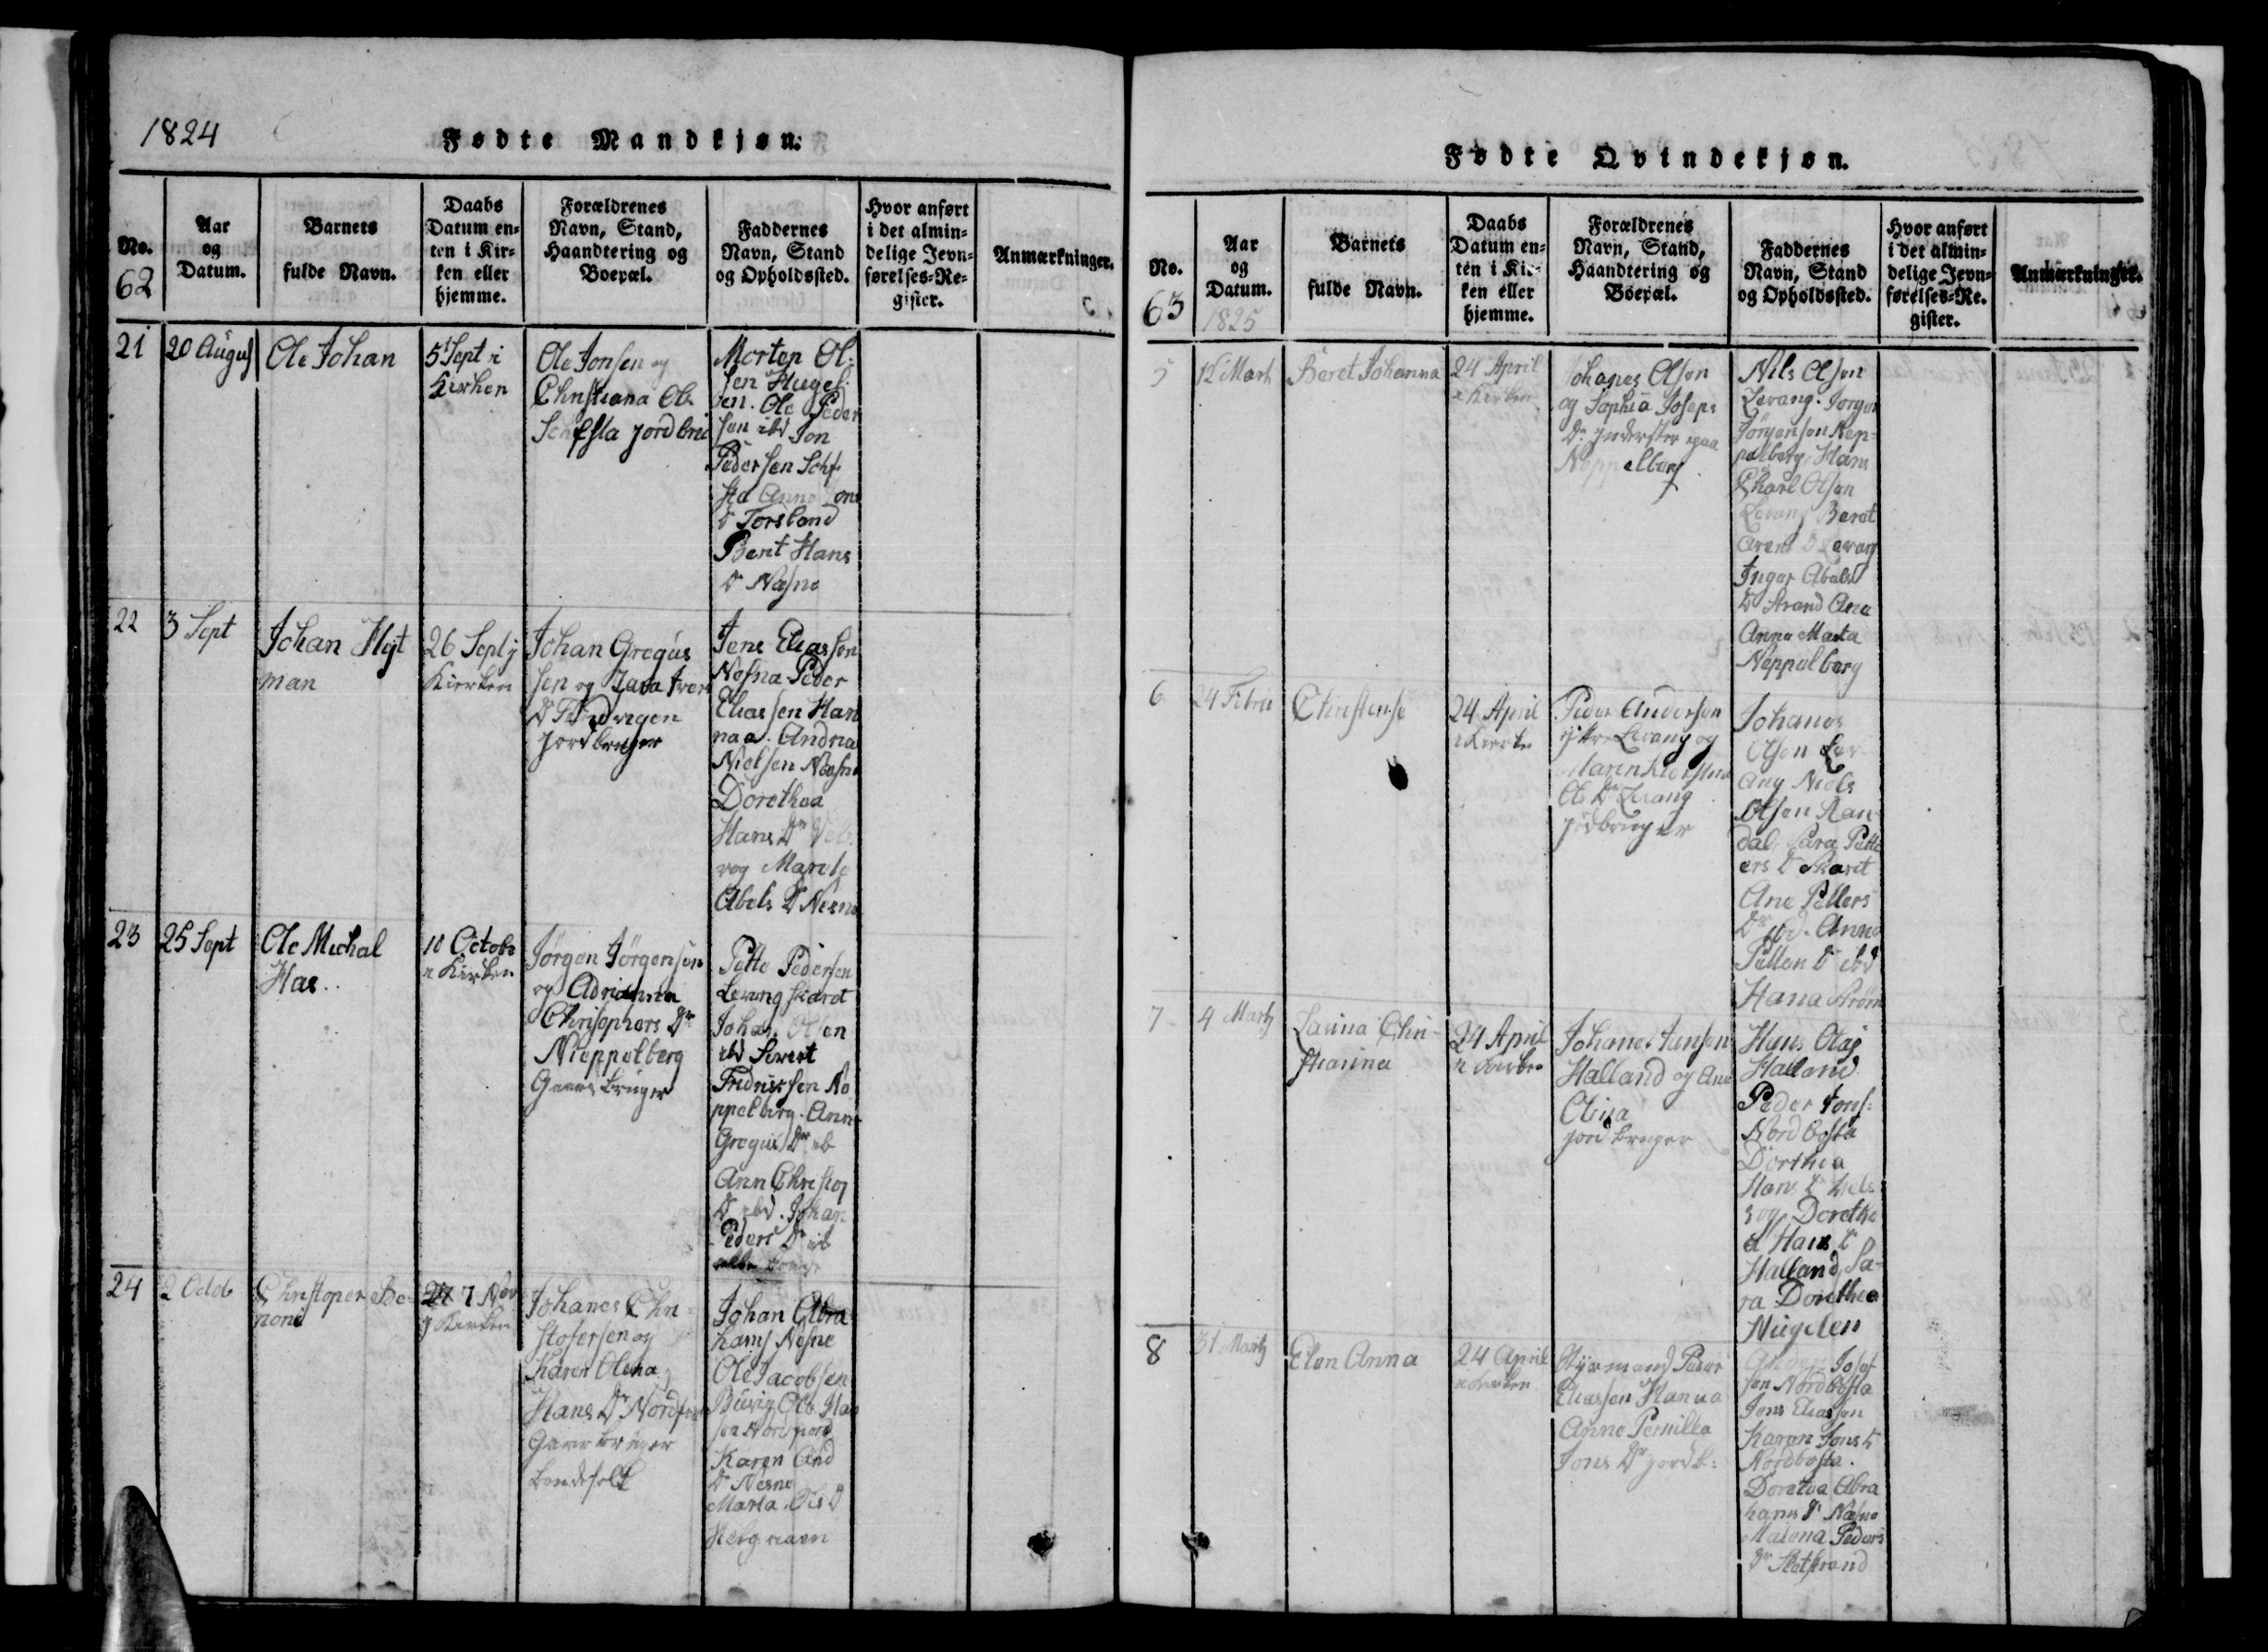 1824
Fødte Mandkjøn.
No.
62
Aar
og
Datum.
Barnets
fulde Navn.
Daabs
Datum en-
ten i Kir-
ken eller
hjemme.
Forældrenes
Navn, Stand,
Haandtering og
Boepæl.
Faddernes
Navn, Stand
og Opholdssted.
Hvor anført
i det almin-
delige Jevn-
førelses-Re-
gister.
Anmærkninger.
21
20 August
Ole Johan
5 Sept i
Kirken
Ole Jonsen og
Christiana Ols
jordbru
Morten Ol-
sen Hugel-
en. Ole Peder
sen ibd Jon
Pedersen
Anne Jons
Dr Forsland
Berit Hans
Dr Næsne
22
3 Sept
Johan Hgt
man
26 Sept j
Kierken
Johan Gregus
sen og Iver
Dr
jordbruger
Jens Eliassen
Nesna Peder
Eliassen Han
naa. Andrea
Nielsen Næsne
Dorethea
Hans Dr
vog Marete
Abels Dr Nesne
23
25 Sept
Ole Michal
Has..
10 Octobr
i Kirken
Jørgen Jørgensen
og Adrianna
Chrisophers Dr
Nieppelberg
Gaardbruger
Pette Pedersen
Levang skaret
Johan Olsen
ibd Sivert
Fredrissen Ne
ppelberg. Ann
Gregus Dr ib
Ann Christop
Dr ibd. Johan
Peders Dr ib
24
2 Octob
Christoper Be-
noni
7 Nov
j Kirken
Johanes Chri-
stofersen og
Karen Olena
Hans Dr Nord
Gaardbruger
Bondefolk
Johan Abra
hams Nesne
Ole Jacobsen
Ole Han
sen
Karen And
Dr Nesne
Marta Ols D
Fødte Qvindekjøn.
No.
63
Aar
og
Datum.
1825
Barnets
fulde Navn.
Daabs
Datum en-
ten i Kir-
ken eller
hjemme.
Forældrenes
Navn, Stand,
Haandtering og
Boepæl.
Faddernes
Navn, Stand
og Opholdssted.
Hvor anført
i det almin-
delige Jevn-
førelses-Re-
gister.
Anmærkninger.
5
12 Mart
Beret Johanna
24 April
i Kirken
Johanes Olsen
og Sophia Joseps
Dr Inderster paa
Neppelberg
Nils Olsen
Levang. Jorgen
Jörgensen Nep-
pelberg, Hans
Charl Olsen
Levang Beret
Arent D Levang
Inger Abels
D Strand Ana
Anna Marta
Neppelberg
6
24 Febru
Christense
24 April
i Kierke
Peder Andersen
yttre Levang og
Maren Kirstine
Ols Dr Levang
jordbruger
Johanes
Olsen Lev-
ang Niels
Olsen Ran
dal, Sara Pette
ers D Skaret
Ane Petters
Dr ibd. Anne
Petters D ibd
Hana Strøm
7
4 Marty
Larina Chri-
stianna
24 April
i Kierke
Johanes Jansen
Halland og Ane
Elisa
jordbruger
Hans Olaj
Halland
Peder Jons-
Nordbosta
Dorthea
Hans Dr
vog Dorethe
a Hans D
Halland, Sa-
ra Dorethea
Nugelen
8
31 Marty
Elen Anna
24 April
i Kierken
Styrmand Peder
Eliassen Hanna
Anne Pernilla
Jons Dr jordb:
Josef
sen Nordbosta
Jens Eliassen
Karen Jons D
Nordbosta.
Doratea Abra
hams Dr Næsne
Malena Peders
Dr Slotstrand